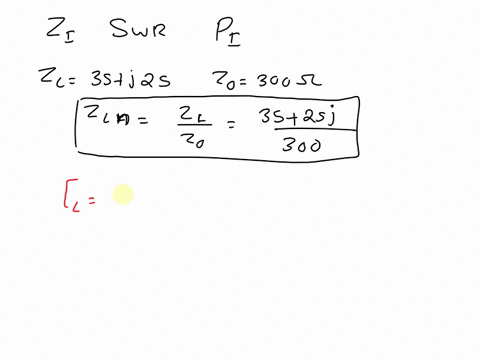 Z_I SWR P_I
Z_L = 35+j25 Z_0 = 300Ω
Z_LN = Z_L/Z_0 = 35+25j/300
Γ_L =